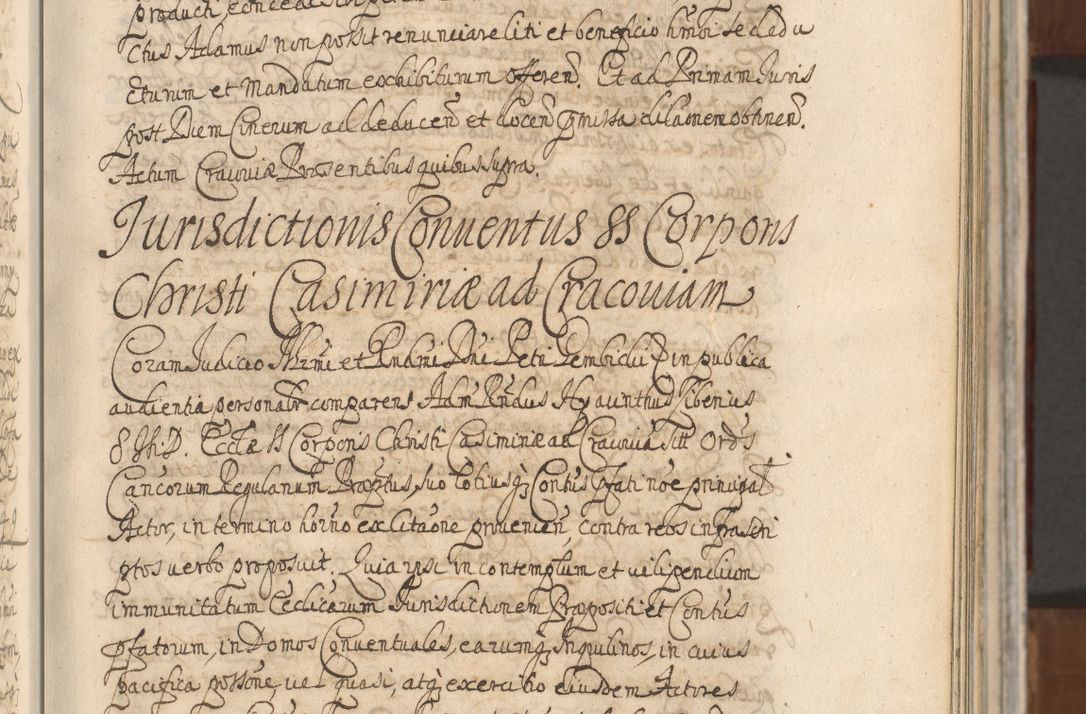 producti
ctus Adamus non possit renunciare liti et beneficio
cturum et Mandatum exhibiturum offeren. Et ad Primam Juris
post Diem Cinerum ad deducen et docen pmissa dilaonem obtinen.
Actum Cracoviæ Præsentibus quibus supra.
Jurisdictionis Conventus SS Corporis
Christi Casimiriæ ad Cracoviam
Coram Judicio Illrmi et Rndmi Dni Petri Gembicki in publica
audientia personalr comparens Adm Rndus Hyacinthus Liberius
S Th. D. Ecclæ SS Corporis Christi Casimiriæ ad Cracoviã sitt Ordis
Cancorum Regularium Præptus, suo totiusq Contus pfati noe principal
Actor, in termino horno ex citaone provenien, contra reos infra scri
ptos verbo proposuit. Quia ipsi in contemptum et vilipendium
immunitatum Ecclicarum Jurisdictionem Præpositi et Contus
pfatorum, in Domos Conventuales, earumq Inquilinos, in cuius
pacifica possone, vel quasi, atq exercitio eiusdem Actores